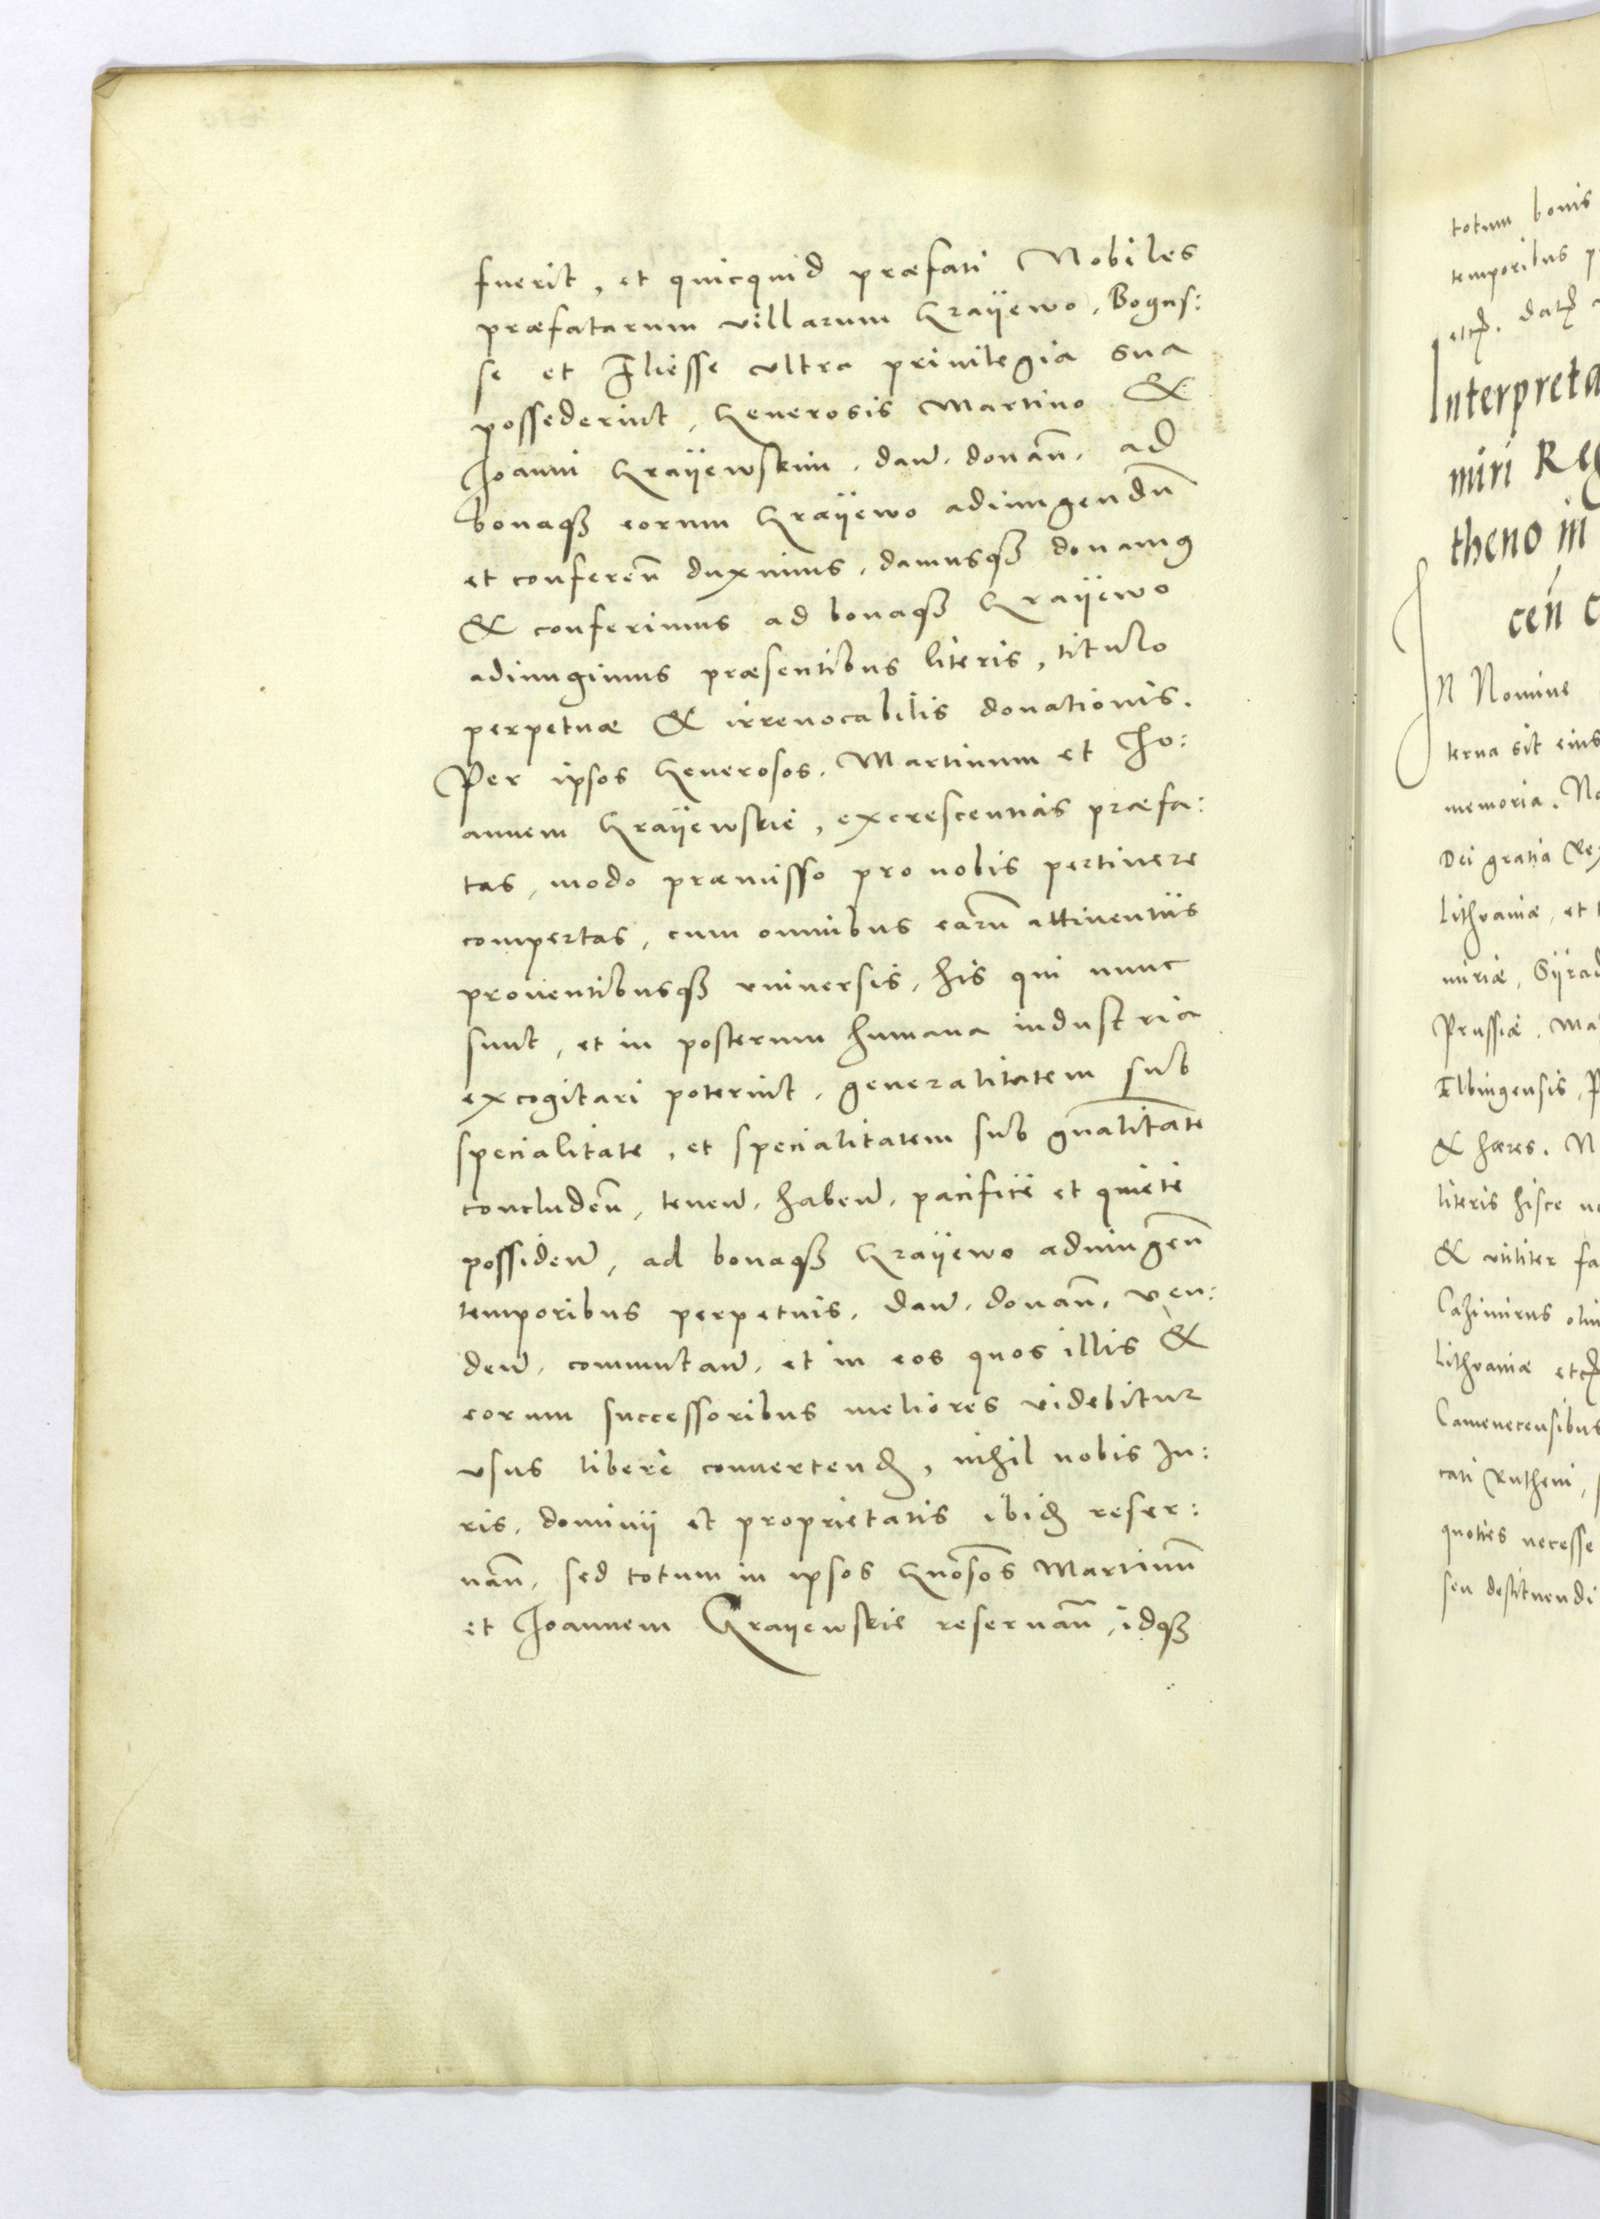 fuerit, et quicquid præfati Nobiles
præfatarum villarum Grayewo, Bogus:
se et Fliesse vltra priuilegia sua
possederint, Generosis Martino &
Joanni Grayewskim, dan̄. donan̄. ad
bonaqʒ eorum Grayewo adiungendū
et conferen̄ duximus, damusqʒ donamꝰ
& conferimus ad bonaqʒ Grayewo
adiungimus præsentibus literis, titulo
perpetuæ & irreuocabilis donationis.
Per ipsos Generosos, Martinum et Jo:
annem Grayewskie, excrescentias præfa:
tas, modo præmisso pro nobis pertinere
compertas, cum omnibus earū attinentiis
prouentibusqʒ vniuersis, his qui nunc
sunt, et in posterum humana industria
excogitari poterint, generalitatem sub
specialitate, et specialitatem sub gn̄alitate
concluden̄, tenen̄. haben̄. pacifice et quiete
possiden̄, ad bonaqʒ Grayewo adiungen̄
temporibus perpetuis, dan̄. donan̄. ven:
den̄. commutan̄. et in eos quos illis &
eorum successoribus meliores videbitur
vsus liberè conuertenꝺ, nihil nobis Iu:
ris, dominij et proprietatis ibiꝺ reser:
uan̄, sed totum in ipsos Gn̄osos Martinū
et Joannem Grayewskie reseruan̄, idqʒ
totum bonis
temporibus p
etcꝭ. datꝭ
Interpreta
miri Reg
theno in
cen̄ c
In Nomine
terna sit eius
memoria. No
Dei gratia Rex
Lithuaniæ, et
miriæ, Syrad
Prussiæ, Ma
Elbingensis, P
& hæres. N
literis hisce
& vtiliter fa
Cazimirus olim
Lithuaniæ etcꝭ
Camenecensibus
cati Rutheni,
quoties necesse
seu destituendi